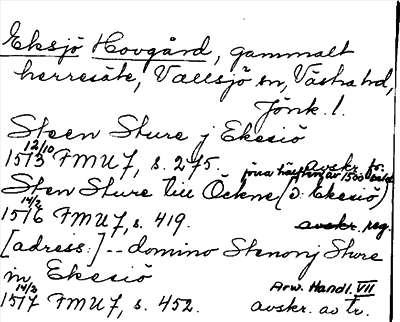 Eksjö Hovgård, gammalt
herresäte, Vallsjö sn, Västra hd,
Jönk. l.
Steen Sture j Ekesiö
12/10 1513 FMU 7, s. 275. Avskr. fr.
Sten Sture till Öckne (ɔ: Ekesiö)
14/2 1516 FMU 7, s. 419. avskr. reg.
[adress:] -- domino Stenonj Sture
in Ekesiö Arw. Handl. VII
14/2 1517 FMU 7, s. 452. avskr. av tr.